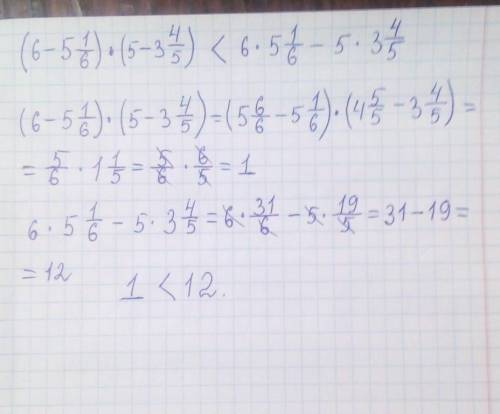 (6 - 5 1/6) · (5 - 3 4/5) < 6 · 5 1/6 - 5 · 3 4/5
(6 - 5 1/6) · (5 - 3 4/5) = (5 6/6 - 5 1/6) · (4 5/5 - 3 4/5) =
= 5/6 · 1 1/5 = 5/6 · 6/5 = 1
6 · 5 1/6 - 5 · 3 4/5 = 6 · 31/6 - 5 · 19/5 = 31 - 19 =
= 12 1 < 12.